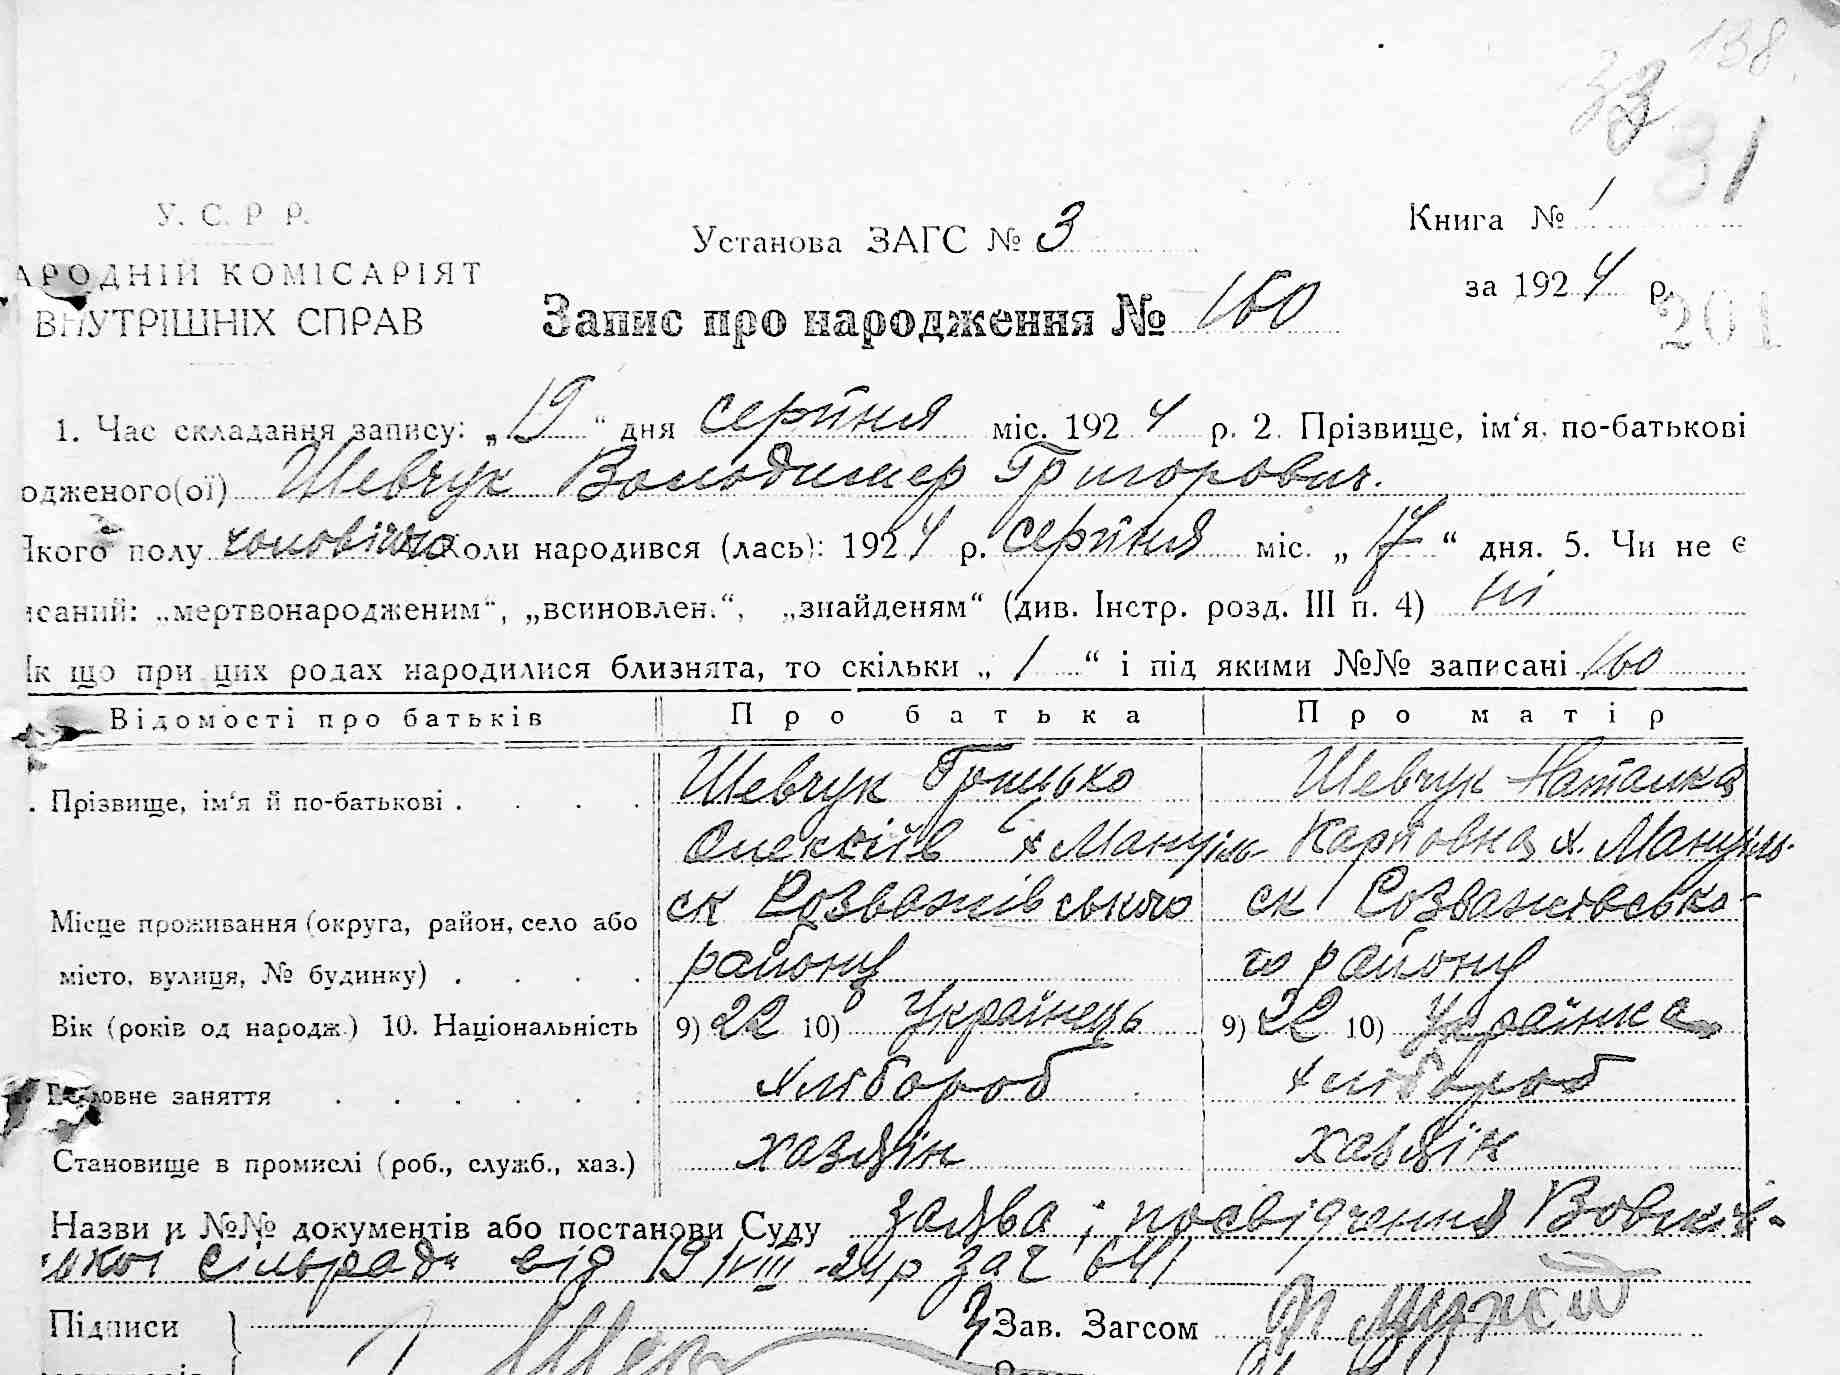 138
33
31
У. С. Р Р.
АРОДНІЙ КОМІСАРІЯТ
ВНУТРІШНІХ СПРАВ
Установа ЗАГС № 3
Книга № 1
за 1924 р.
201
Запис про народження № 160
1. Час складання запису: „19“ дня серпня міс. 1924 р. 2. Прізвище, ім‘я, по-батькові
одженого(ої) Шевчук Володимер Григорович.
Якого полу чоловічого Коли народився (лась): 1924 р. серпня міс. „17“ дня. 5. Чи не є
исаний: „мертвонародженим“, „всиновлен.“, „знайденям“ (див. Інстр. розд. III п. 4) ні
Як що при цих родах народилися близнята, то скільки „1“ і під якими №№ записані 160
Відомості про батьків Про батька Про матір
. Прізвище, ім‘я й по-батькові . . . . Шевчук Грицько Шевчук Наталка
Олексіїв х Мануїль- Карповна х. Мануїль-
Місце проживання (округа, район, село або ск Розважівського ск Розважовсько-
місто, вулиця, № будинку) . . . . району го району
Вік (років од народж.) 10. Національність 9) 22 10) Українець 9) 22 10) Українка
Головне заняття . . . . . . хлібороб хлібороб
Становище в промислі (роб., служб., хаз.) хазяін хазяін
Назви й №№ документів або постанови Суду заява і посвідчення
сільради від 19/VIII-24 р за ч 641
Підписи } Зав. Загсом